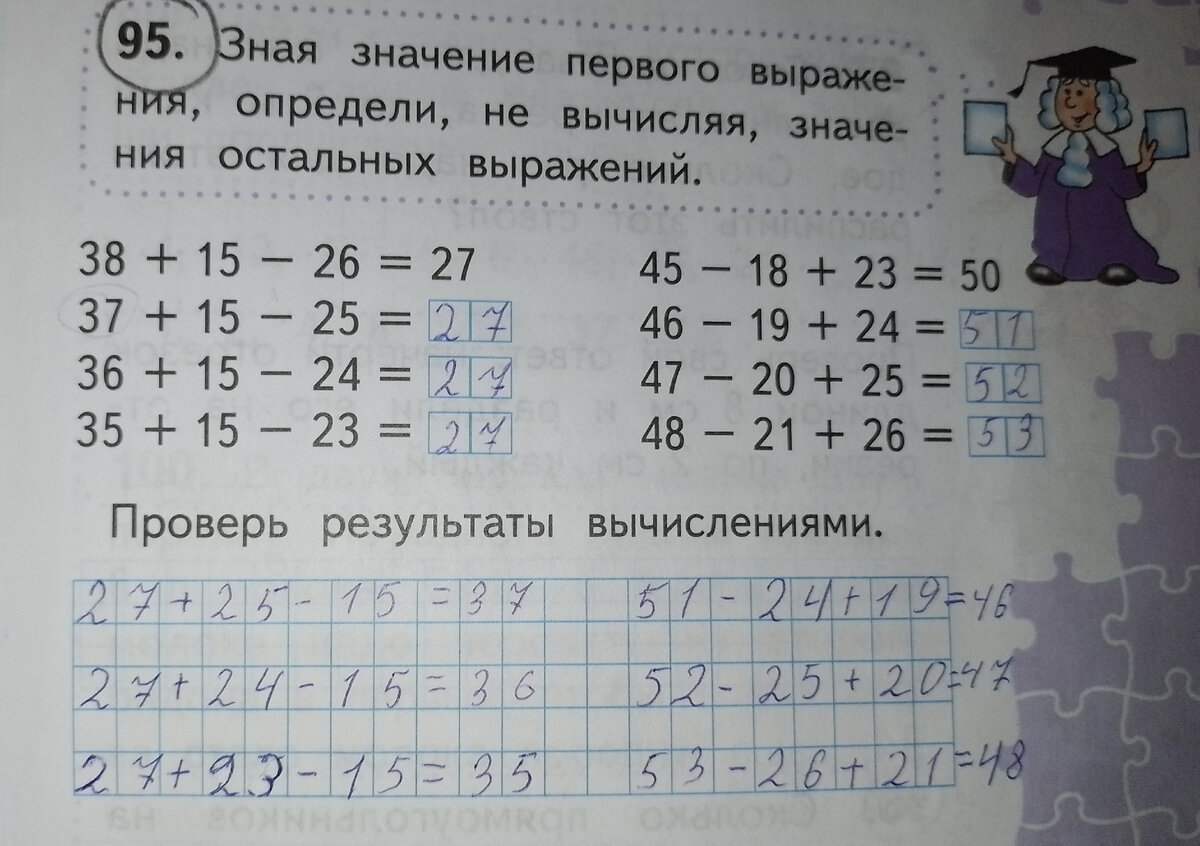 95. Зная значение первого выраже-
ния, определи, не вычисляя, значе-
ния остальных выражений.
38 + 15 − 26 = 27 45 − 18 + 23 = 50
37 + 15 − 25 = 27 46 − 19 + 24 = 51
36 + 15 − 24 = 27 47 − 20 + 25 = 52
35 + 15 − 23 = 27 48 − 21 + 26 = 53
Проверь результаты вычислениями.
27+25-15=37 51-24+19=46
27+24-15=36 52-25+20=47
27+23-15=35 53-26+21=48